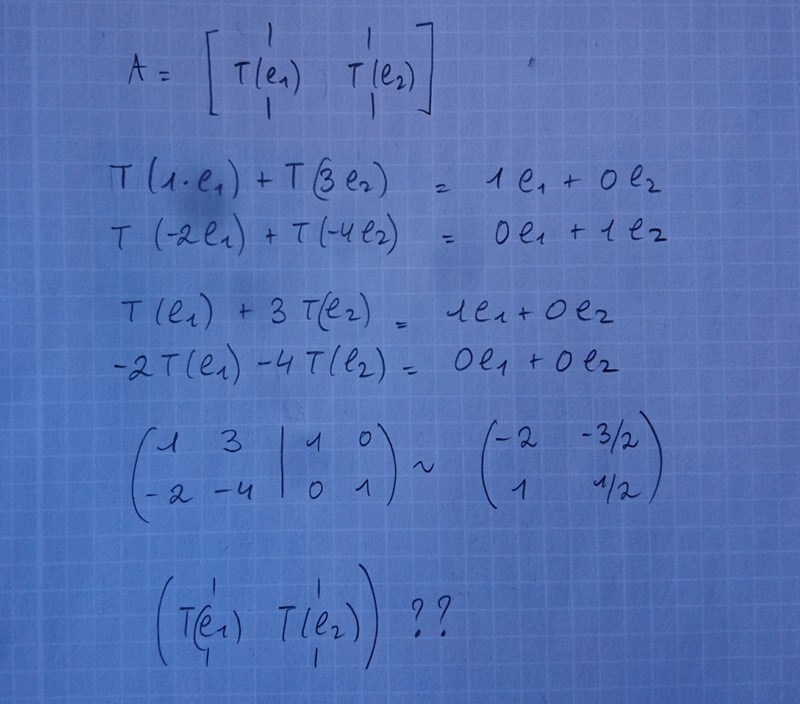 A = [ T(e₁) T(e₂) ]
T (1·e₁) + T(3e₂) = 1e₁ + 0e₂
T (-2e₁) + T(-4e₂) = 0e₁ + 1e₂
T(e₁) + 3T(e₂) = 1e₁ + 0e₂
-2T(e₁) -4T(e₂) = 0e₁ + 0e₂
( 1 3 | 1 0 ) ~ ( -2 -3/2 )
( -2 -4 | 0 1 ) ( 1 1/2 )
( T(e₁) T(e₂) ) ??